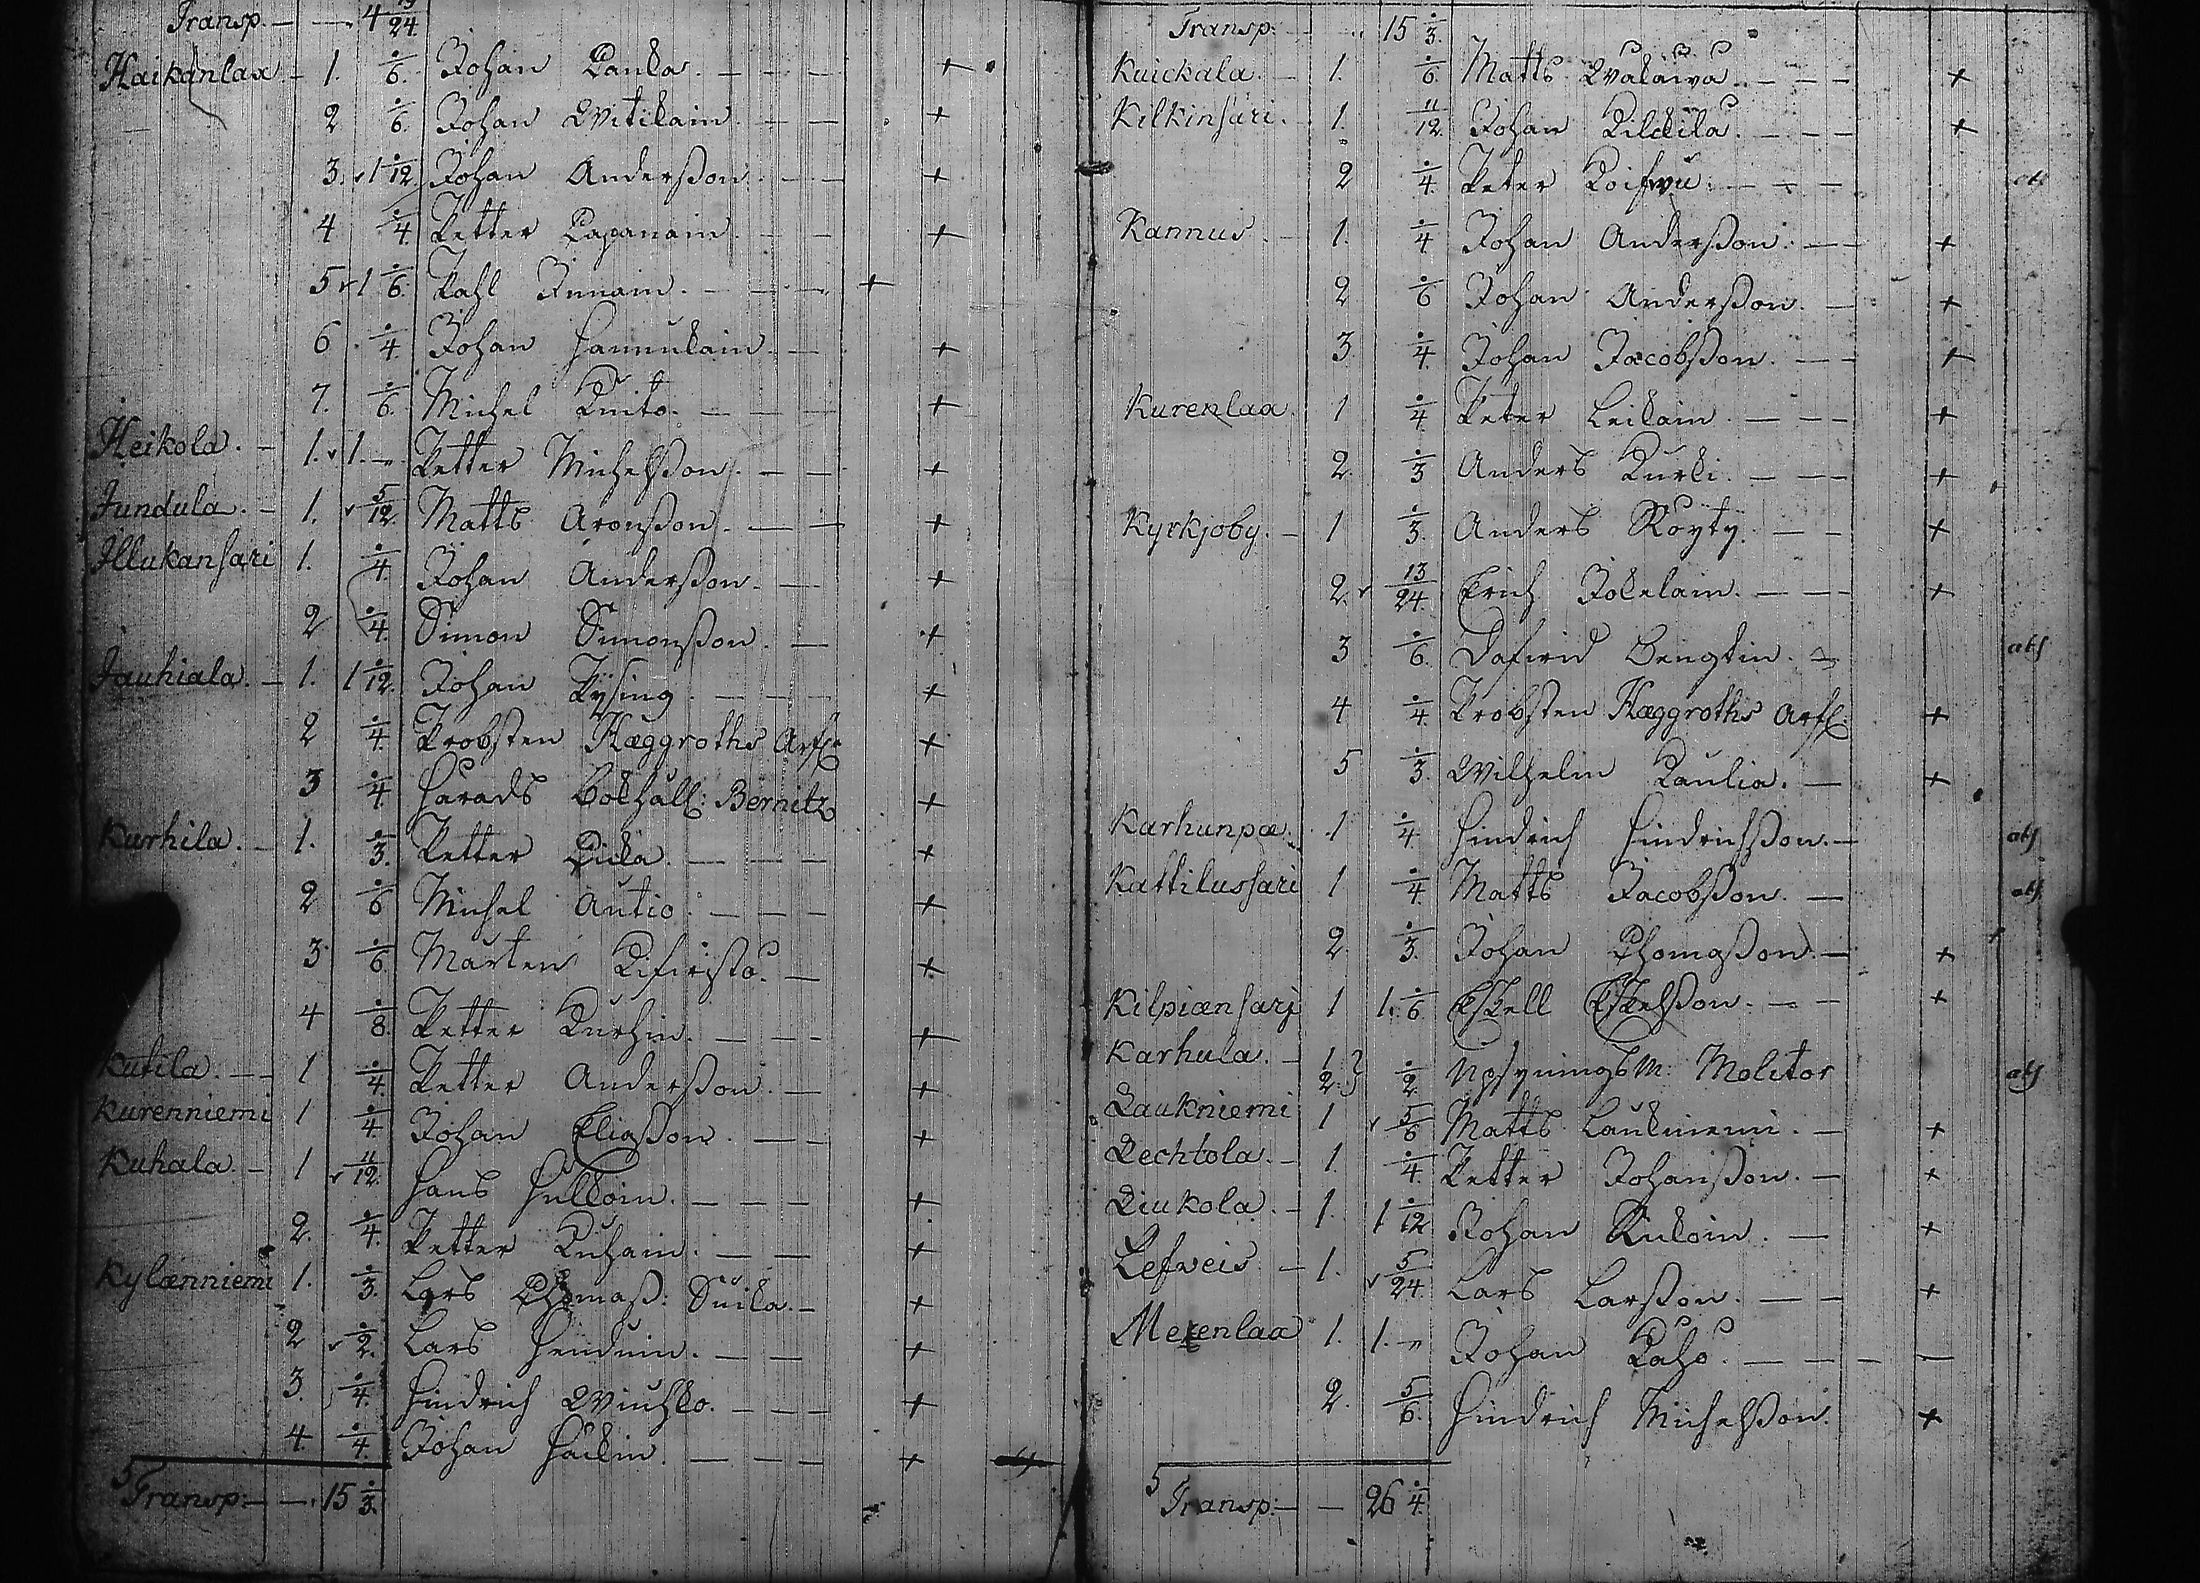 Transp. — 4 13/24
Haikanlax — 1. ./6. Johan Pauka. — — — +
2 ./6. Johan Witikain — — +
3. v 1 ./12. Johan Anderßon. — — +
4 ./4. Petter Papanain — — +
5 v 1 ./6. Pahl Innain. — — — +
6 ./4. Johan Hannukain — +
7. ./6. Michel Kuito. — — — +
Heikola. — 1. v 1. „ Petter Michelßon. — — +
Jundula. — 1. v 5/12. Matts Aronßon. — — +
Illukansari 1. ./4. Johan Anderßon. — +
2 ./4. Simon Simonßon. — +
Jauhiala. — 1. 1 ./12. Johan Pÿsing. — — — +
2 ./4. Probsten Hæggroths Arfl: +
3 ./4. Härads Bokhåll: Bernitz +
Kurhila. — 1. ./3. Petter Kuka. — — — +
2 ./6 Michel Autio. — — — +
3. ./6. Mårten Kifwistö. — +
4 ./8. Petter Kurhin. — — — +
Kutila. — — 1 ./4. Petter Anderßon. — +
Kurenniemi 1 ./4. Johan Eliaßon. — — +
Kuhala. — 1 v 11/12. Hans Hulkoin. — — — +
2. ./4. Petter Kuhain. — — +
Kylænniemi 1. ./3. Lars Thomaß: Suika. — +
2 v ./2. Lars Henduin. — — +
3. ./4. Hindrich Wiuhko. — — — +
4. ./4. Johan Häkin. — — — +
Transp: — — 15 ./3.
Transp: — 15 ./3.
Kuickala. — 1. ./6. Matts Wäkäwä. — — — +
Kilkinsari. 1. 11/12. Johan Kilkilä. — — — +
2 ./4. Peter Koifwu. — — — ats
Kannus. — 1. ./4 Johan Anderßon. — — +
2 ./6 Johan Anderßon. — +
3. ./4. Johan Jacobßon. — — +
Kurenlax. 1 ./4. Peter Leikain. — — — +
2. ./3 Anders Kurki. — — — +
Kyrkjoby. — 1 ./3. Anders Röyty. — — +
2. v 13/24. Erich Jokelain. — — — +
3 ./6. Dafwid Bengtin. — ats
4 ./4. Probsten Hæggroths Arfl: +
5 ./3. Wilhelm Kaulia. — +
Karhunpæ. 1 ./4. Hindrich Hindrichßon. — ats
Kattilussari 1 ./4. Matts Jacobßon. — ats
2. ./3. Johan Thomaßon. — +
Kilpiænsarj 1 1. ./6 Eskell Eskelßon. — — +
Karhula. — 1. 2. } ./2 UpsyningsM: Molitor ats
Laukniemi 1 v 5/6 Matts Laukniemi. — +
Lechtola. — 1. ./4. Petter Johanßon. — +
Liukola. — 1. 1 ./12 Johan Kukoin. — +
Lefveis. — 1. v 5/24. Lars Larßon. — — +
Merenlax 1. 1. „ Johan Kähö. — — — —
2. 5/6. Hindrich Michelßon. +
Transp: — — 26 ./4.